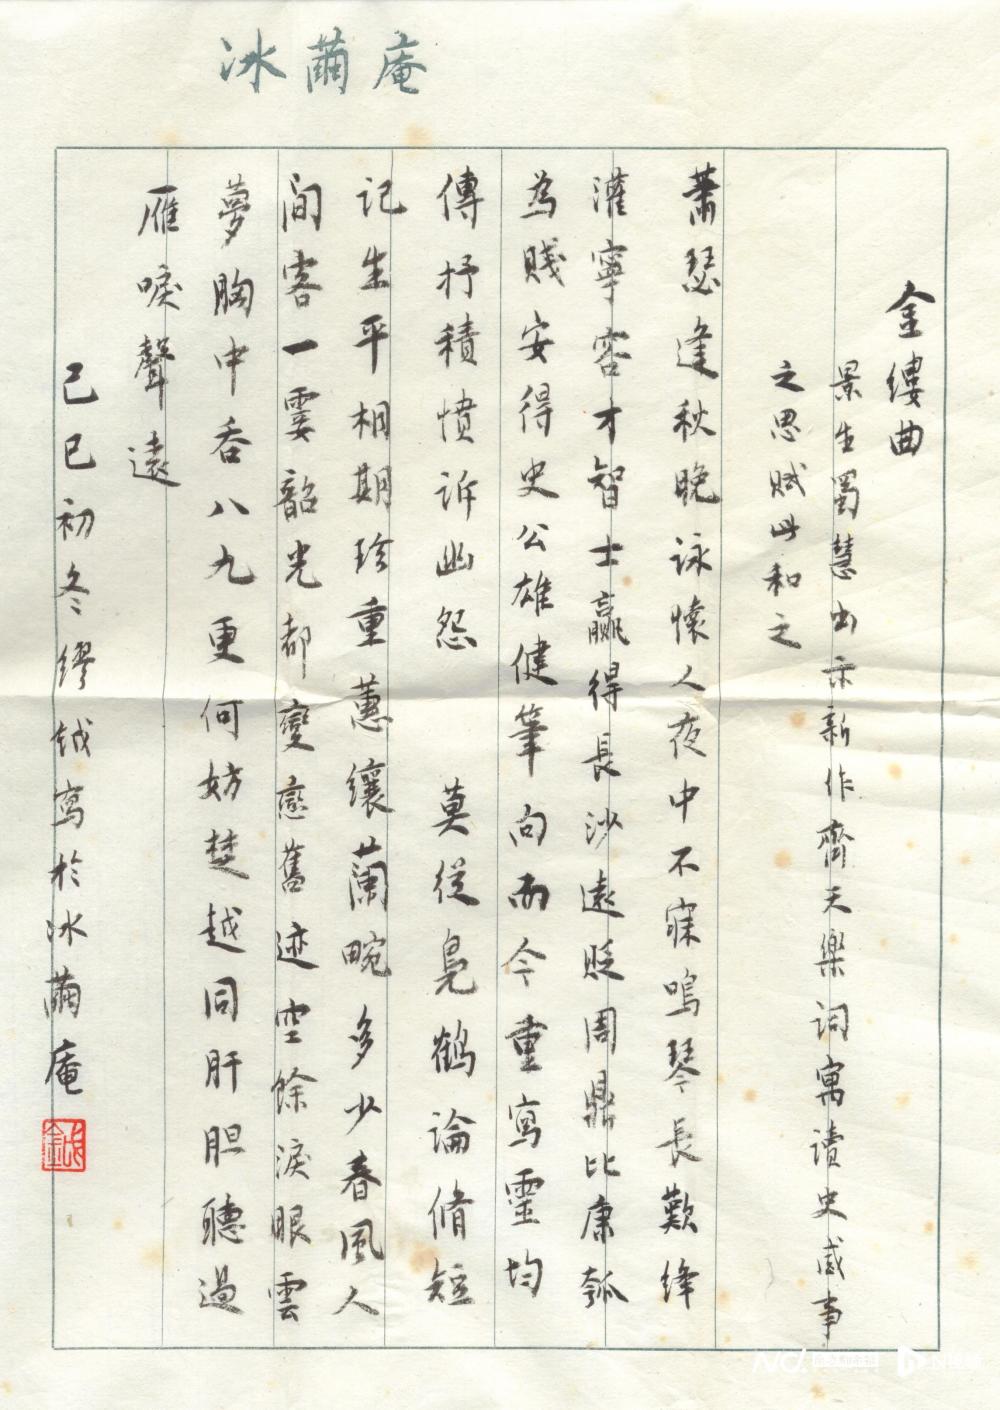 冰繭庵
金縷曲
景生蜀慧出示新作齊天樂詞寓讀史感事
之思賦此和之
蕭瑟逢秋晚詠懷人夜中不寐鳴琴長歎絳
灌寧容才智士贏得長沙遠貶周鼎比康瓠
為賤安得史公雄健筆向而今重寫靈均
傳抒積憤訴幽怨 莫從鳧鶴論脩短
記生平相期珍重蕙纕蘭畹多少春風人
間客一霎韶光都變戀舊迹空餘淚眼雲
夢胸中吞八九更何妨楚越同肝胆聽過
雁唳聲遠
己巳初冬繆鉞寫於冰繭庵
鉞
N视频